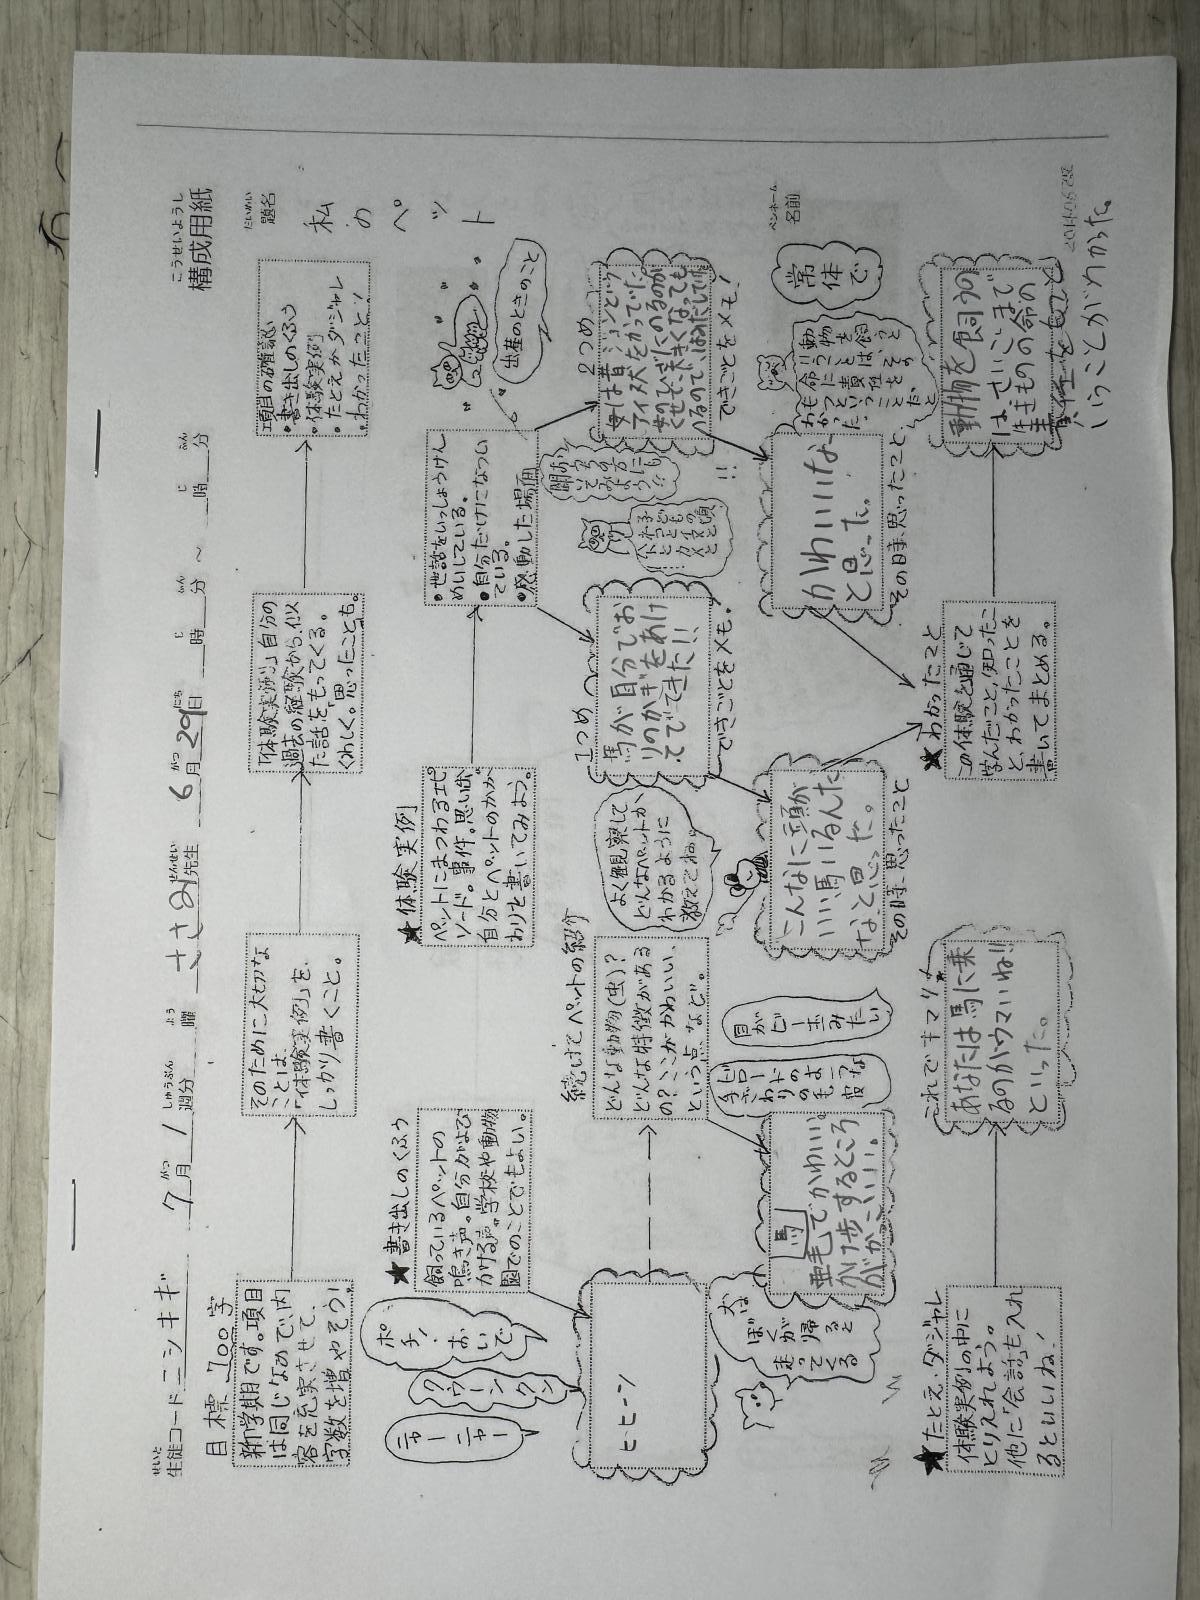 こうせいようし
構成用紙
せいと
生徒コード ニシキギ 7月 1 週分 曜 ささみ先生 6月29日 時 分 ～ 時 分
がつ しゅうぶん よう せんせい がつ にち じ ふん じ ふん
目標 700字
新学期です。項目
は同じなので、内
容を充実させて、
字数を増やそう!
そのために大切な
ことは、
「体験実例」を、
しっかり書くこと。
「体験実例」自分の
過去の経験から、似
た話をもってくる。
くわしく。「思ったことも。
項目の確認
●書き出しのくふう
●体験実例
●たとえかダジャレ
●わかったこと!
だいめい
題名
私のペット
★書き出しのくふう
飼っているペットの
鳴き声。自分がよび
かける声。学校や動物
園でのことでもよい。
ポチ!おいで
クゥーンクン
ニャーニャー
ヒ・ヒーン
続けてペットの紹介
どんな動物(虫)?
どんな特徴がある
の?ここがかわいい、
という点など。
よく観察して
どんなペットか、
わかるように
教えてね。
目がビー玉みたい
犬はぼくが帰ると
走ってくる
馬
亜毛でかわいい。
かけ歩するところ
がかっこいい。
★体験実例
ペットにまつわるエピ
ソード。事件。思い出。
自分とペットのかか
わりを書いてみよう。
●世話をいっしょうけん
めいしている。
●自分だけになつい
ている。
●感動した場面
出産のときのこと
1つめ
馬が自分でお
りのかぎをあけ
てでてきた!!
できごとをメモ!
こんなに頭が
いい馬いるんだ
な、と思った。
その時、思ったこと
2つめ
母は昔、ミョンという
アイヌ犬をかっていた。
できごとをメモ!
かわいいな
と思った。
その時、思ったこと
ペンネーム
名前
常体で
動物を飼うと
いうことは、その
命に責任をも
つということだと
わかった。
★たとえ・ダジャレ
体験実例の中に
とり入れよう。
他に「会話」も入れ
るといいね!
これでキマリ★
あなたは馬に乗
るのがウマいね!!
といった。
★わかったこと
この体験を通じて
学んだこと、知ったこ
と、わかったことを
書いてまとめる。
動物を飼うの
は、せいいで
生きものの命の
いうことがわかった。